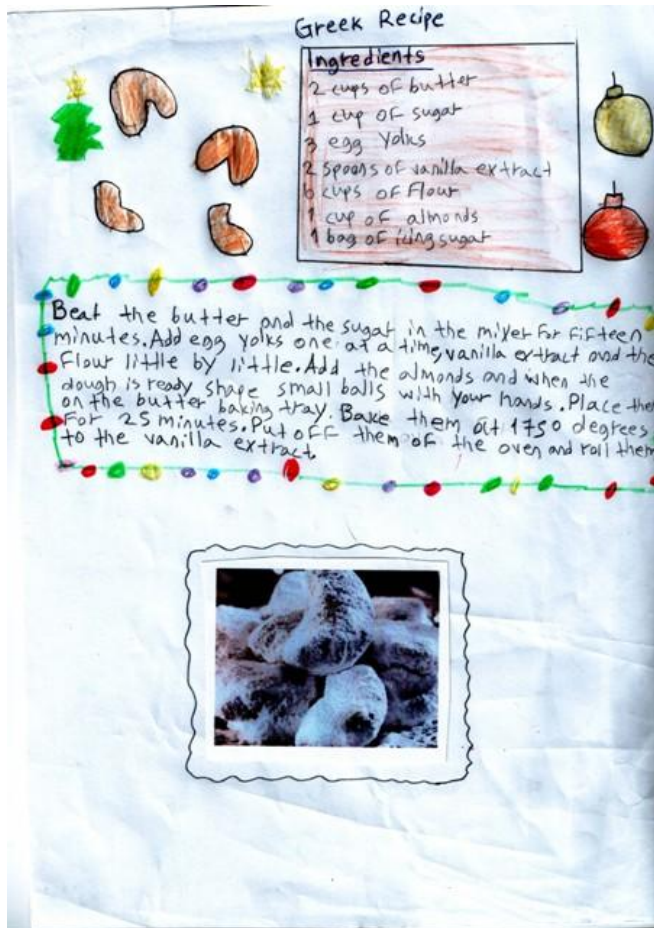 Greek Recipe
Ingredients
2 cups of butter
1 cup of sugar
3 egg yolks
2 spoons of vanilla extract
6 cups of flour
1 cup of almonds
1 bag of icing sugar
Beat the butter and the sugar in the mixer for fifteen
minutes. Add egg yolks one at a time, vanilla extract and the
flour little by little. Add the almonds and when the
dough is ready shape small balls with your hands. Place the
on the butter baking tray. Bake them at 1750 degrees
for 25 minutes. Put off them of the oven and roll them
to the vanilla extract.